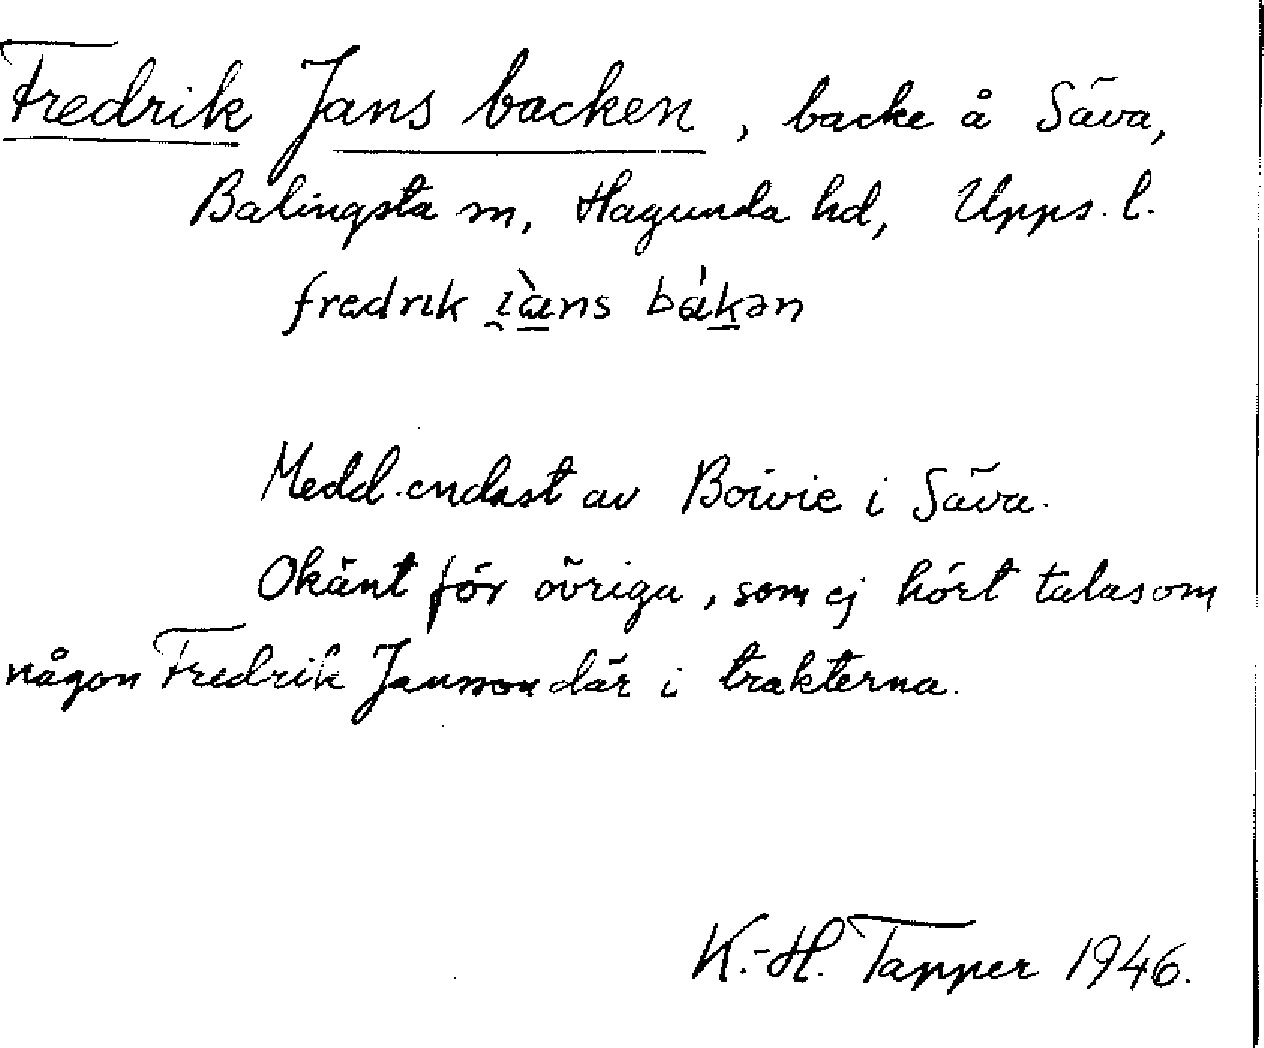 Fredrik Jans backen, backe å Säva,
Balingsta sn, Hagunda hd, Upps. l.
fredrik i̯àns bákən
Medd. endast av Boivie i Säva.
Okänt för övriga, som ej hört talas om
någon Fredrik Jansson där i trakterna.
K.-H. Tapper 1946.